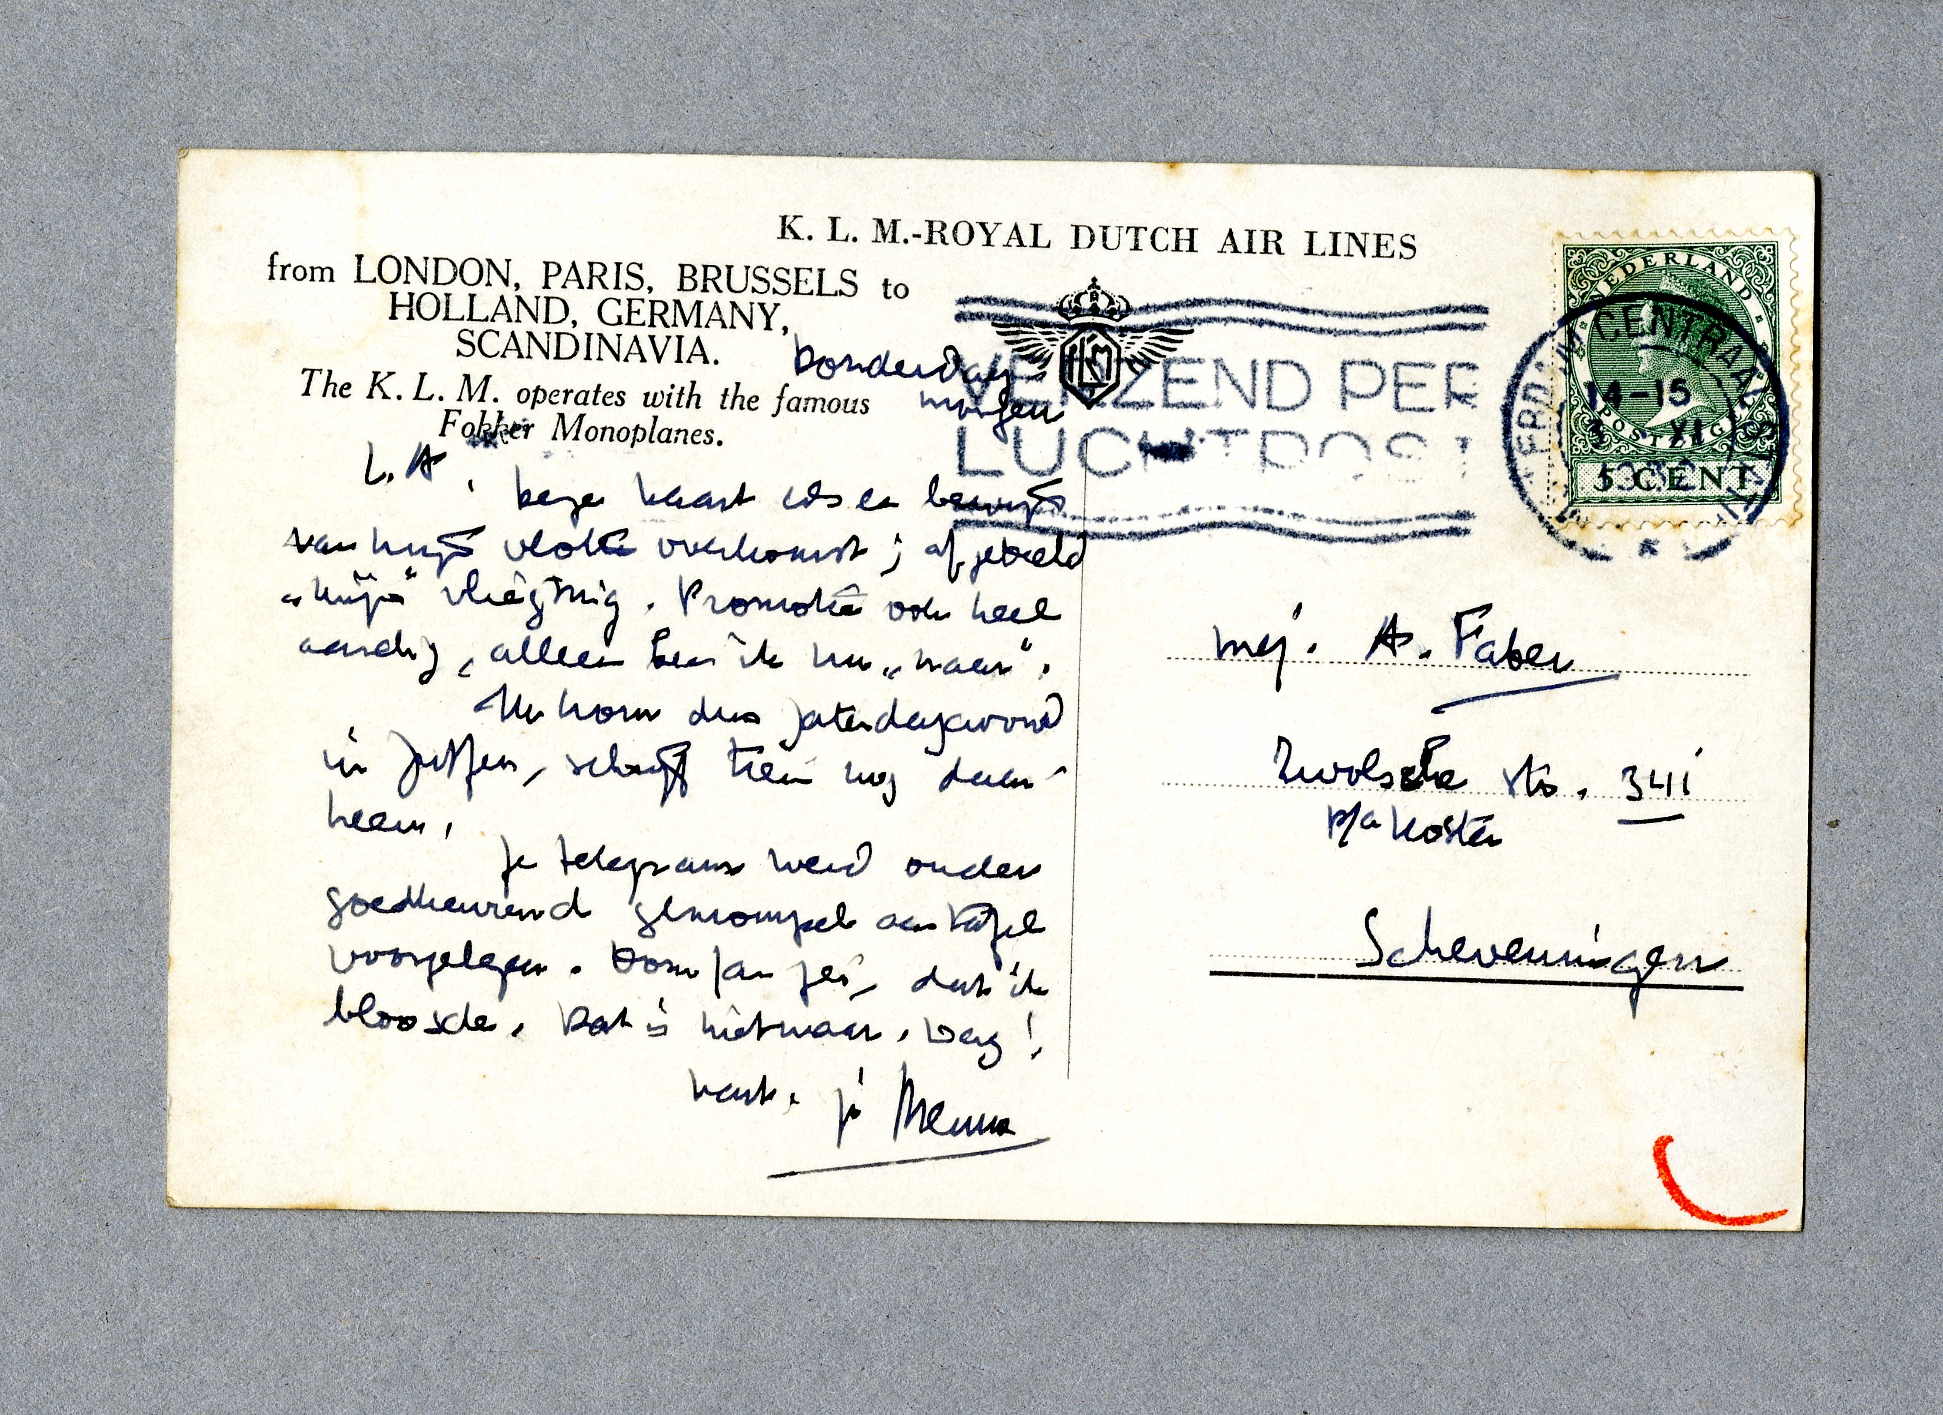 K. L. M.-ROYAL DUTCH AIR LINES
from LONDON, PARIS, BRUSSELS to
HOLLAND, GERMANY,
SCANDINAVIA.
The K. L. M. operates with the famous
Fokker Monoplanes.
KLM
VERZEND PER
LUCHTPOST
NEDERLAND
POSTZEGEL
5 CENT
CENTRAAL STATION
14-15
XI
Donderdag
morgen
L. A.,
Deze kaart als een bewijs
van mijn vlotte overkomst; afgebeeld
"mijn" vliegtuig. Promotie ook heel
aardig, alleen ben ik nu "naar".
Ik kom dus Zaterdagavond
in Zutfen, schrijf Trien nog daar-
heen.
Je telegram werd onder
goedkeurend gemompel aan tafel
voorgelezen. Oom Jan zei, dat ik
bloosde. Dat is niet waar. Dag!
hart. je Menno
mej. A. Faber
Zwolsche str. 341
p/a Koster
Scheveningen